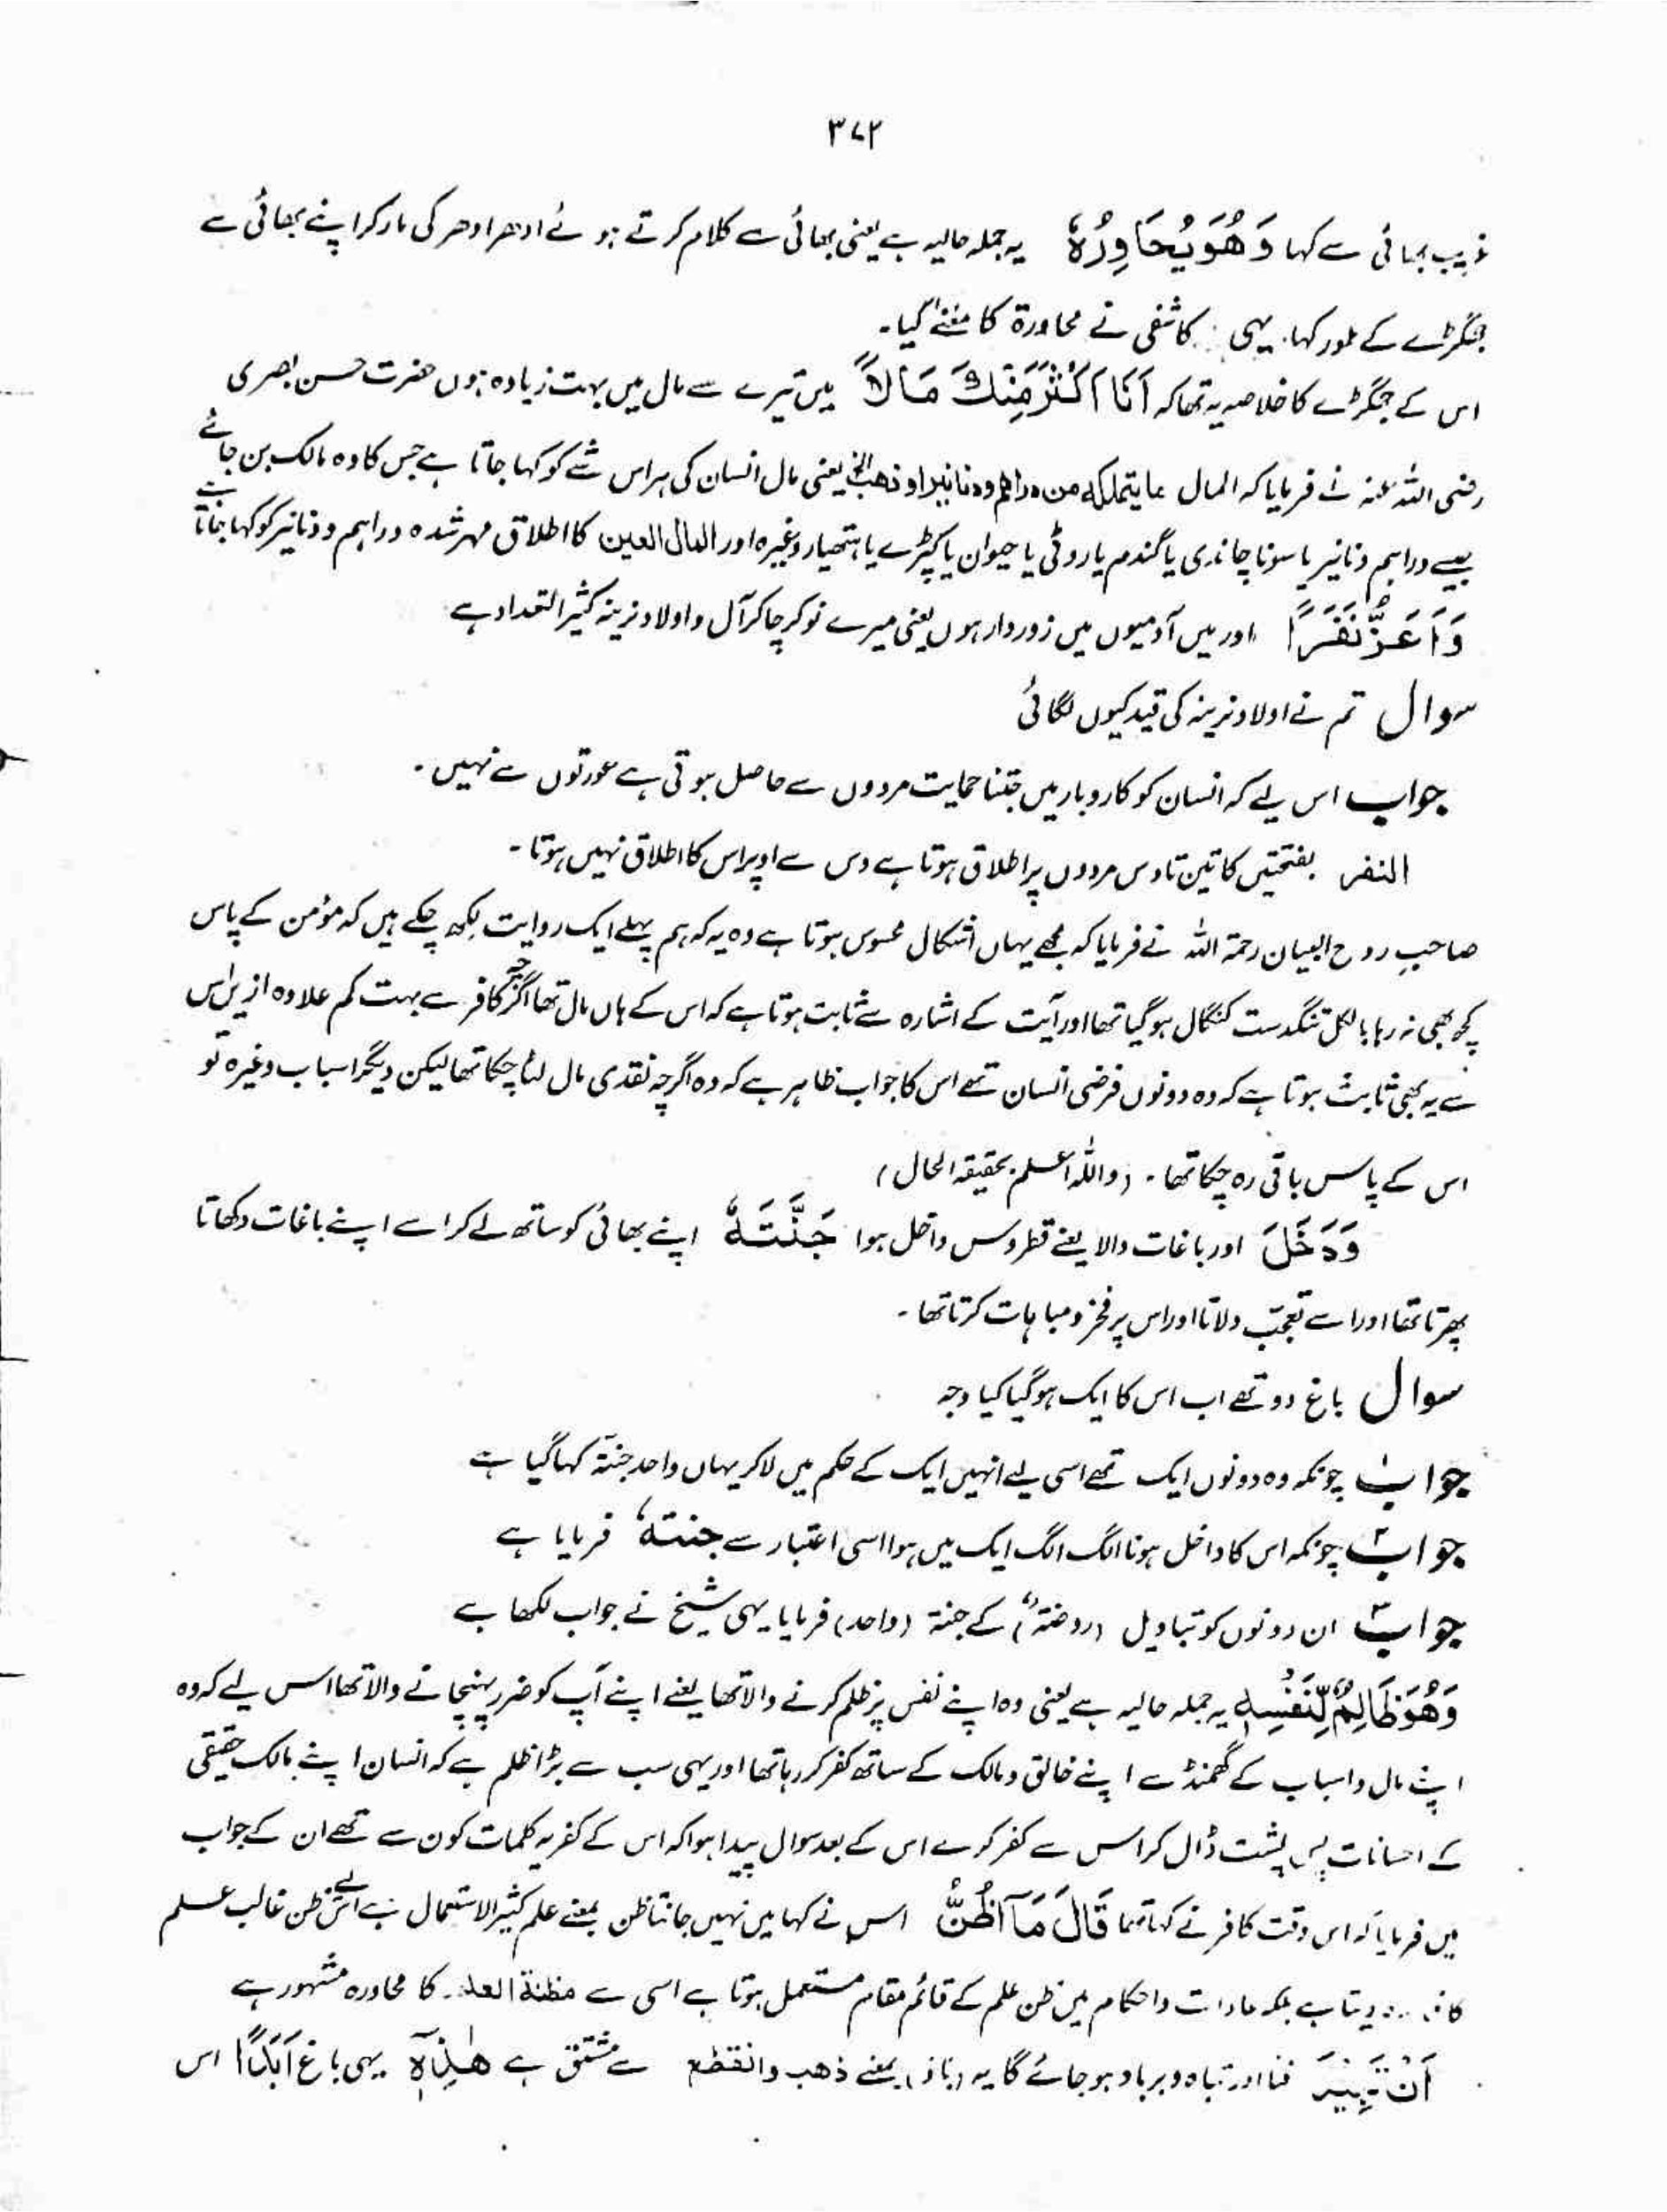 ۳۷۲
غریب بھائی سے کہا وَهُوَ يُحَاوِرُهٗ یہ جملہ حالیہ ہے یعنی بھائی سے کلام کرتے ہوئے ادھر ادھر کی مار کر اپنے بھائی سے
جھگڑے کے طور کہا۔ یہی کاشفی نے محاورۃ کا معنےٰ کیا۔
اس کے جھگڑے کا خلاصہ یہ تھا کہ اَنَا اَكْثَرُ مِنْكَ مَالًا میں تیرے سے مال میں بہت زیادہ ہوں حضرت حسن بصری
رضی اللہ عنہ نے فرمایا کہ المال ما یتملکہ من دراھم و دنانیر او ذھب الخ یعنی مال انسان کی ہر اس شے کو کہا جاتا ہے جس کا وہ مالک بن جائے
جیسے دراہم دنانیر یا سونا چاندی یا گندم یا روٹی یا حیوان یا کپڑے یا ہتھیار وغیرہ اور المال العین کا اطلاق مہر شدہ دراہم و دنانیر کو کہا جاتا ہے
وَاَعَزُّ نَفَرًا اور میں آدمیوں میں زور دار ہوں یعنی میرے نوکر چاکر آل و اولاد نرینہ کثیر التعداد ہے
سوال تم نے اولاد نرینہ کی قید کیوں لگائی
جواب اس لیے کہ انسان کو کاروبار میں جتنا حمایت مردوں سے حاصل ہوتی ہے عورتوں سے نہیں۔
النفر بفتحتیں کا تین تا دس مردوں پر اطلاق ہوتا ہے دس سے اوپر اس کا اطلاق نہیں ہوتا۔
صاحبِ روح البیان رحمۃ اللہ نے فرمایا کہ مجھے یہاں اشکال محسوس ہوتا ہے وہ یہ کہ ہم پہلے ایک روایت لکھ چکے ہیں کہ مؤمن کے پاس
کچھ بھی نہ رہا بالکل تنگدست کنگال ہوگیا تھا اور آیت کے اشارہ سے ثابت ہوتا ہے کہ اس کے ہاں مال تھا اگرچہ کافر سے بہت کم علاوہ ازیں اس
سے یہ بھی ثابت ہوتا ہے کہ وہ دونوں فرضی انسان تھے اس کا جواب ظاہر ہے کہ وہ اگرچہ نقدی مال لٹا چکا تھا لیکن دیگر اسباب وغیرہ تو
اس کے پاس باقی رہ چکا تھا۔ (واللہ اعلم بحقیقۃ الحال)
وَدَخَلَ اور باغات والا یعنے قطروس داخل ہوا جَنَّتَهٗ اپنے بھائی کو ساتھ لے کر اسے اپنے باغات دکھاتا
پھرتا تھا اور اسے تعجب دلاتا اور اس پر فخر و مباہات کرتا تھا۔
سوال باغ دو تھے اب اس کا ایک ہوگیا کیا وجہ
جواب۱ چونکہ وہ دونوں ایک تھے اسی لیے انہیں ایک کے حکم میں لاکر یہاں واحد جنۃ کہا گیا ہے
جواب۲ چونکہ اس کا داخل ہونا الگ الگ ایک میں ہوا اسی اعتبار سے جنتہٗ فرمایا ہے
جواب۳ ان دونوں کو بتاویل (روضتہ) کے جنۃ (واحد) فرمایا یہی شیخ نے جواب لکھا ہے
وَهُوَ ظَالِمٌ لِّنَفْسِهٖ یہ جملہ حالیہ ہے یعنی وہ اپنے نفس پر ظلم کرنے والا تھا یعنے اپنے آپ کو ضرر پہنچانے والا تھا اس لیے کہ وہ
اپنے مال و اسباب کے گھمنڈ سے اپنے خالق و مالک کے ساتھ کفر کر رہا تھا اور یہی سب سے بڑا ظلم ہے کہ انسان اپنے مالک حقیقی
کے احسانات پس پشت ڈال کر اس سے کفر کرے اس کے بعد سوال پیدا ہوا کہ اس کے کفریہ کلمات کون سے تھے ان کے جواب
میں فرمایا کہ اس وقت کافر نے کہا تھا قَالَ مَآ اَظُنُّ اس نے کہا میں نہیں جانتا ظن بمعنے علم کثیر الاستعمال ہے اس لیے ظن غالب علم
کا دیتا ہے بلکہ عادات و احکام میں ظن علم کے قائم مقام مستعمل ہوتا ہے اسی سے مظنۃ العلم کا محاورہ مشہور ہے
اَنْ تَبِيْدَ فنا اور تباہ و برباد ہو جائے گا یہ (باد) بمعنے ذھب وانقطع سے مشتق ہے هٰذِهٖٓ یہی باغ اَبَدًا اس